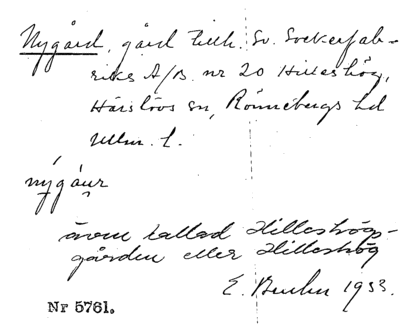 Nygård, gård tillh. Sv. Sockerfab-
riks A/B. nr 20 Hilleshög,
Härslövs sn, Rönnebergs hd
Mlm. l.
nýgáu̯r
även kallad Hilleshögs-
gården eller Hilleshög
E. 1933.
Nr 5761.